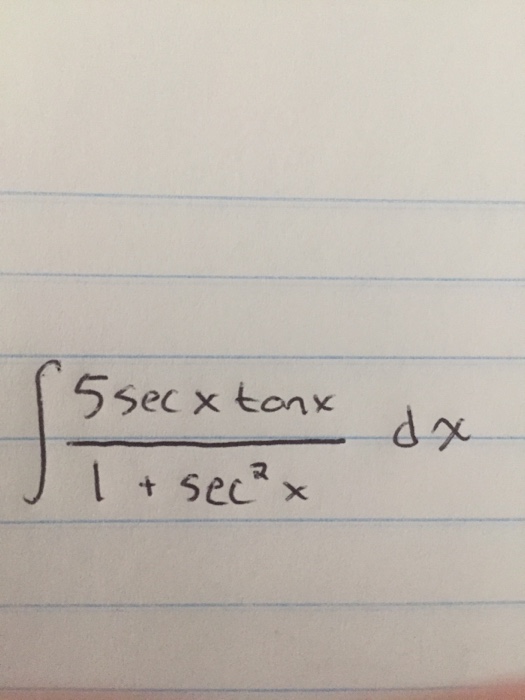 ∫ 5 sec x tan x / 1 + sec² x dx